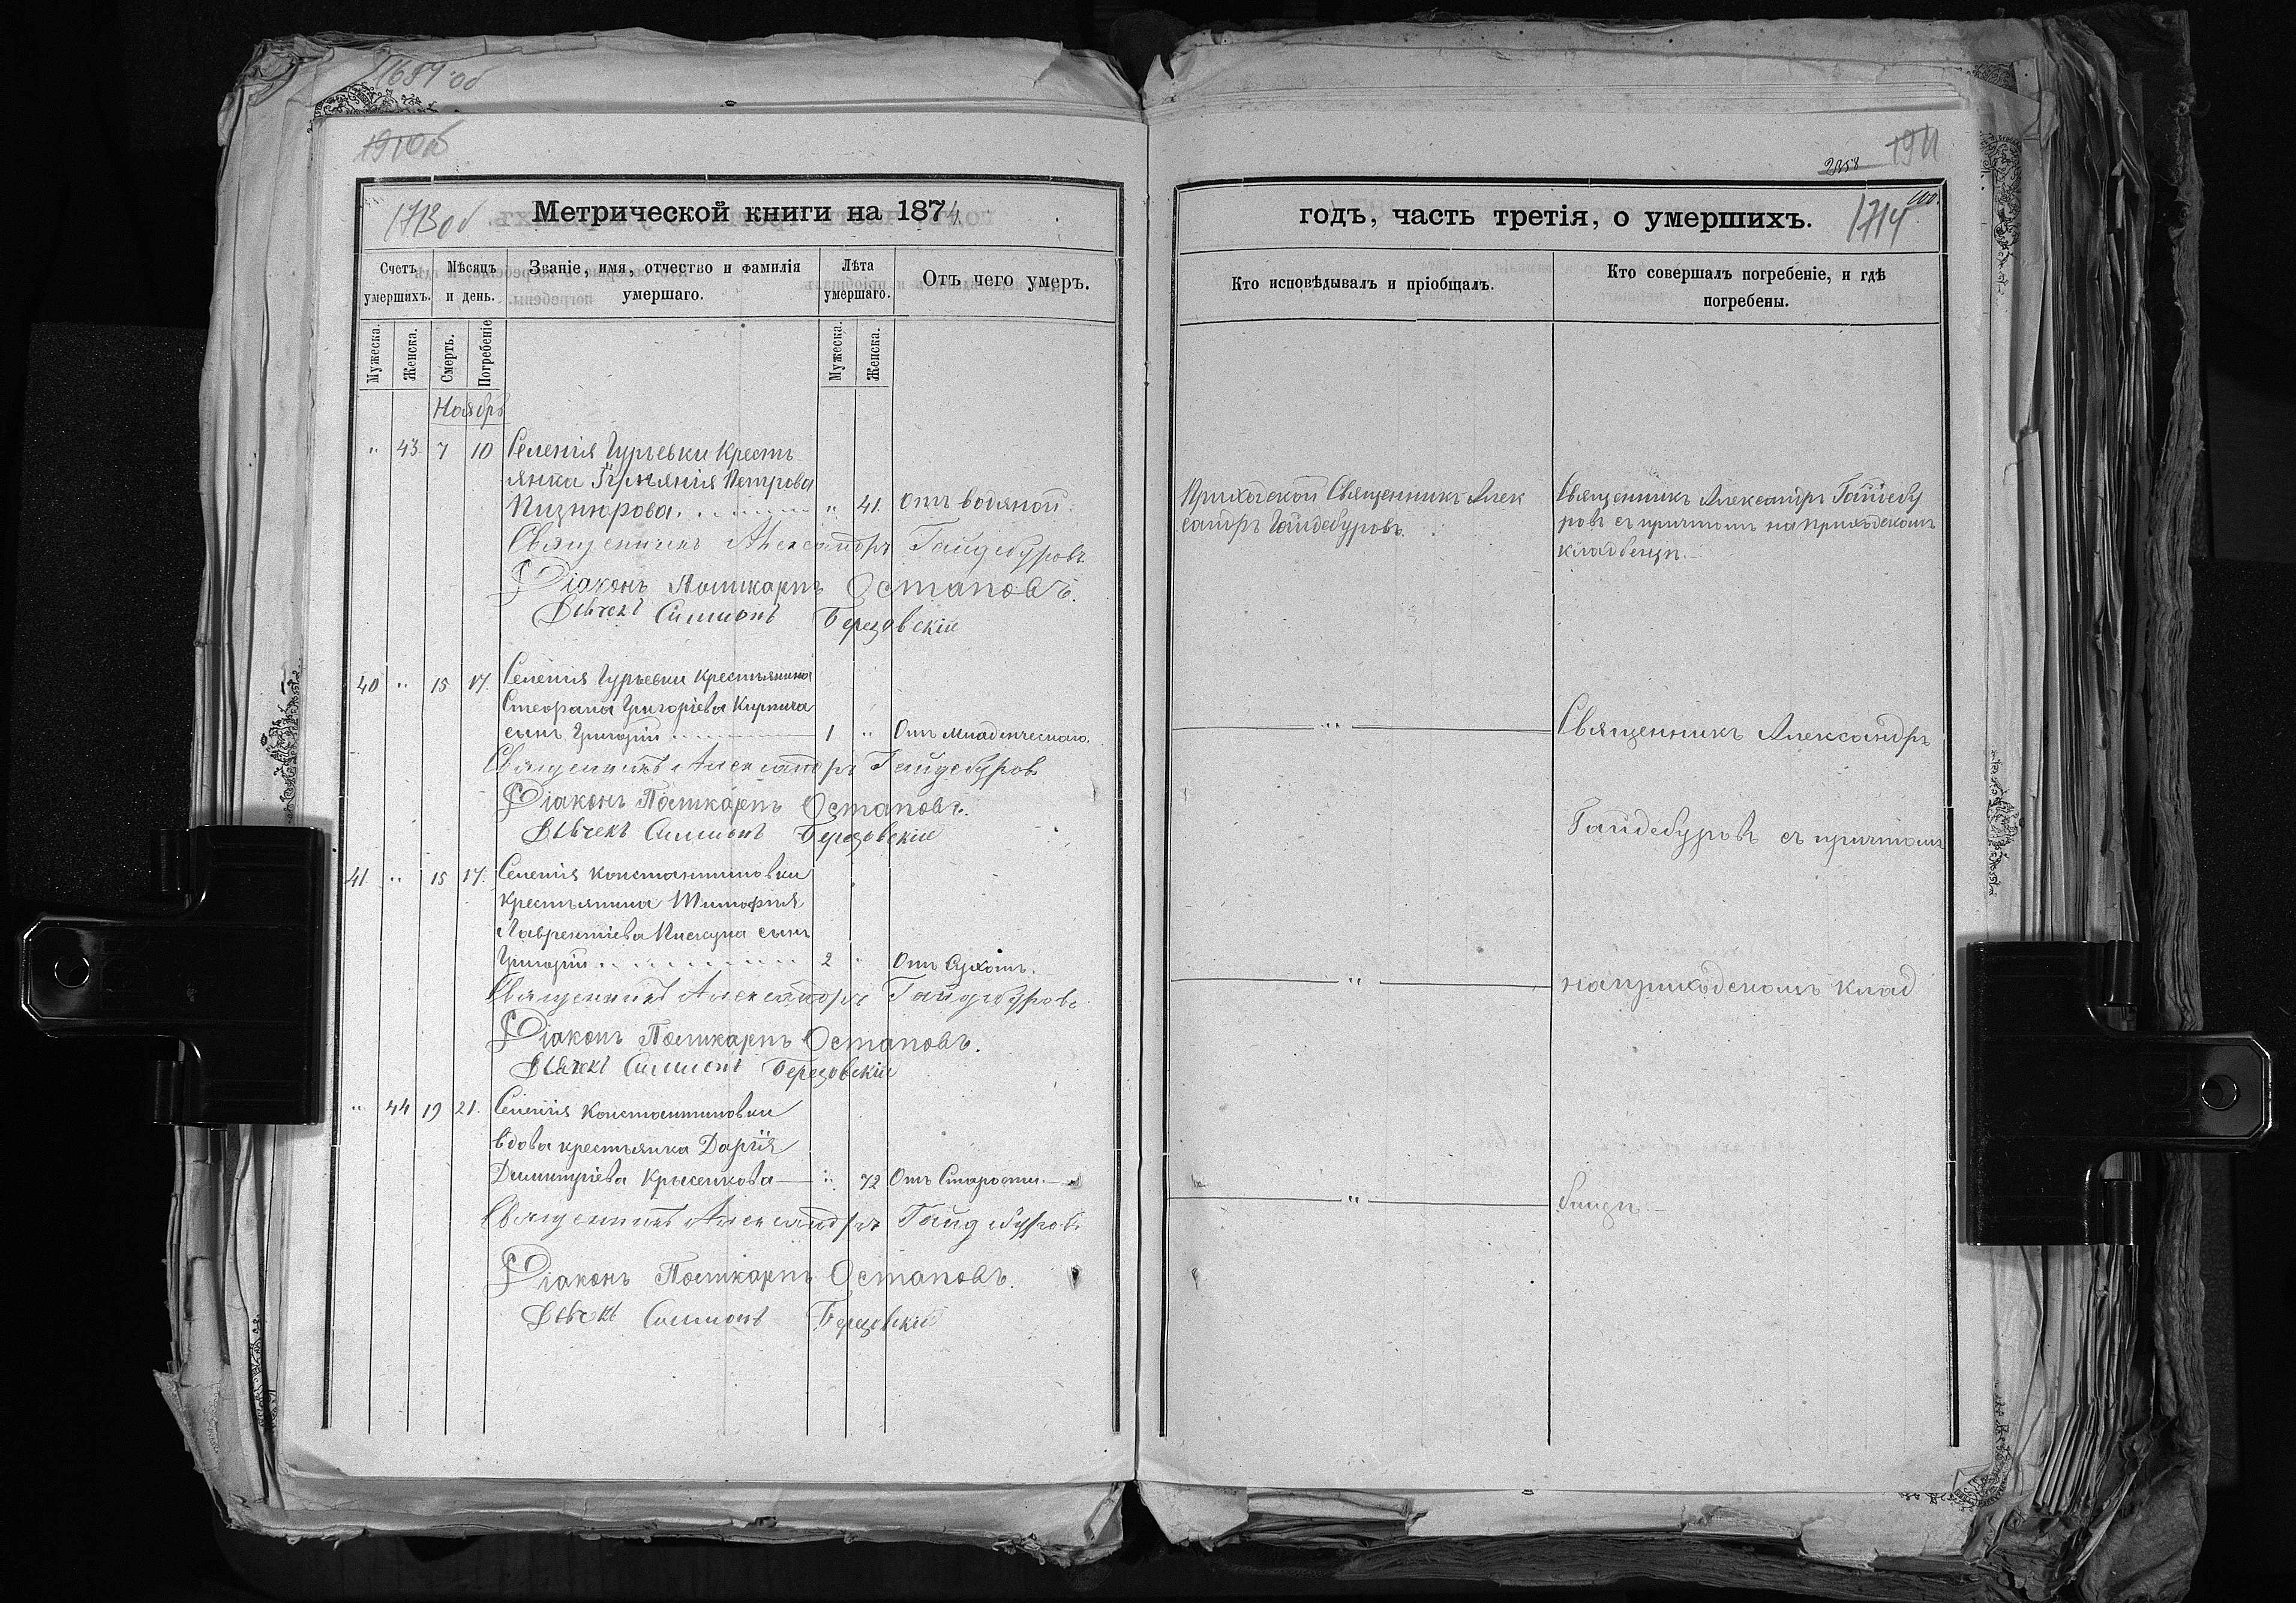 1687 об
1910б
1713 об.
Метрической книги на 1874.
Счетъ умершихъ.
Мѣсяцъ и день.
Званіе, имя, отчество и фамилія умершаго.
Лѣта умершаго.
Отъ чего умеръ.
Мужеска.
Женска.
Смерть.
Погребеніе
Мужеска.
Женска.
Ноябрь
" 43 7 10 Селенія Гурьевки кресть
янка Петрова
" 41. Отъ водяной.
Священникъ Александръ Гайдебуровъ
Діаконъ Поликарпъ Остаповъ.
Симеонъ Березовскій
40 " 15 17. Селенія Гурьевки крестьянина
Стефана Григоріева Кирпича
сынъ Григорій 1 " Отъ младенческаго.
Священникъ Александръ Гайдебуровъ
Діаконъ Поликарпъ Остаповъ.
Симеонъ Березовскій
41. " 15 17. Селенія Константиновки
крестьянина Тимофея
Лаврентіева Пискуна сынъ
Григорій 2 " Отъ Сухотъ.
Священникъ Александръ Гайдебуровъ
Діаконъ Поликарпъ Остаповъ.
Симеонъ Березовскій
" 44 19 21. Селенія Константиновки
вдова крестьянка Дарія
Димитріева Крысенкова " 72 Отъ Старости.
Священникъ Александръ Гайдебуровъ
Діаконъ Поликарпъ Остаповъ.
Симеонъ Березовскій
1911
2358
100.
1714
годъ, часть третія, о умершихъ.
Кто исповѣдывалъ и пріобщалъ.
Кто совершалъ погребеніе, и гдѣ погребены.
Приходской Священникъ Алек
сандръ Гайдебуровъ.
Священникъ Александръ Гайдебу
ровъ съ причтомъ на приходскомъ
кладбищѣ.
"
Священникъ Александръ
Гайдебуровъ съ причтомъ
"
на приходскомъ клад
"
бищѣ.